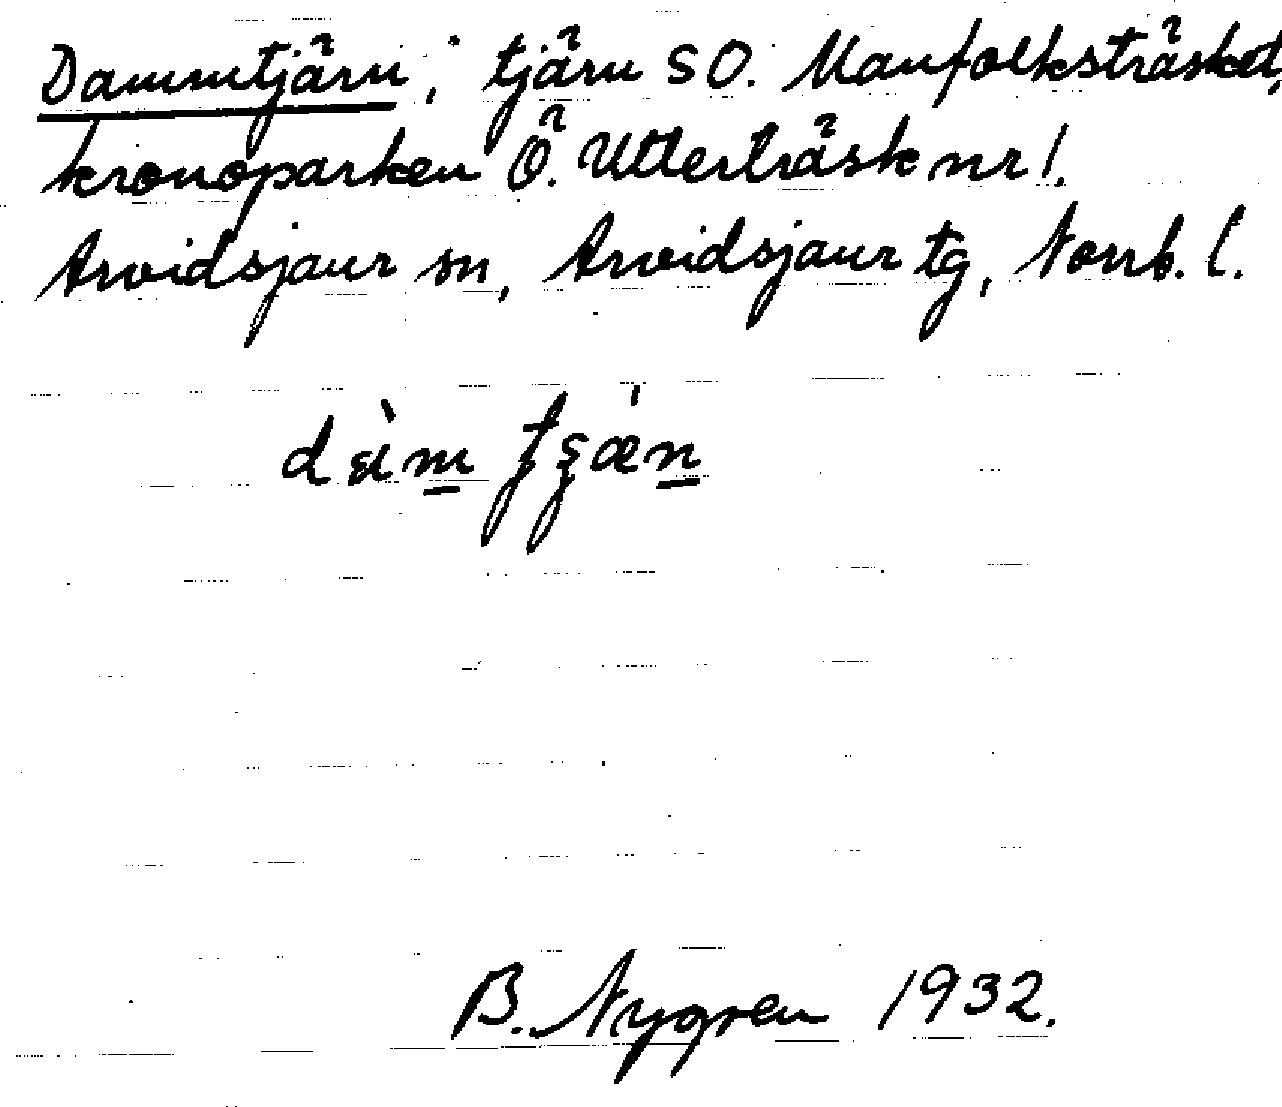 Dammtjärn; tjärn SO. Manfolksträsket,
kronoparken Ö. Utterträsk nr 1.
Arvidsjaur sn, Arvidsjaur tg, Norrb. l.
B. Nygren 1932.